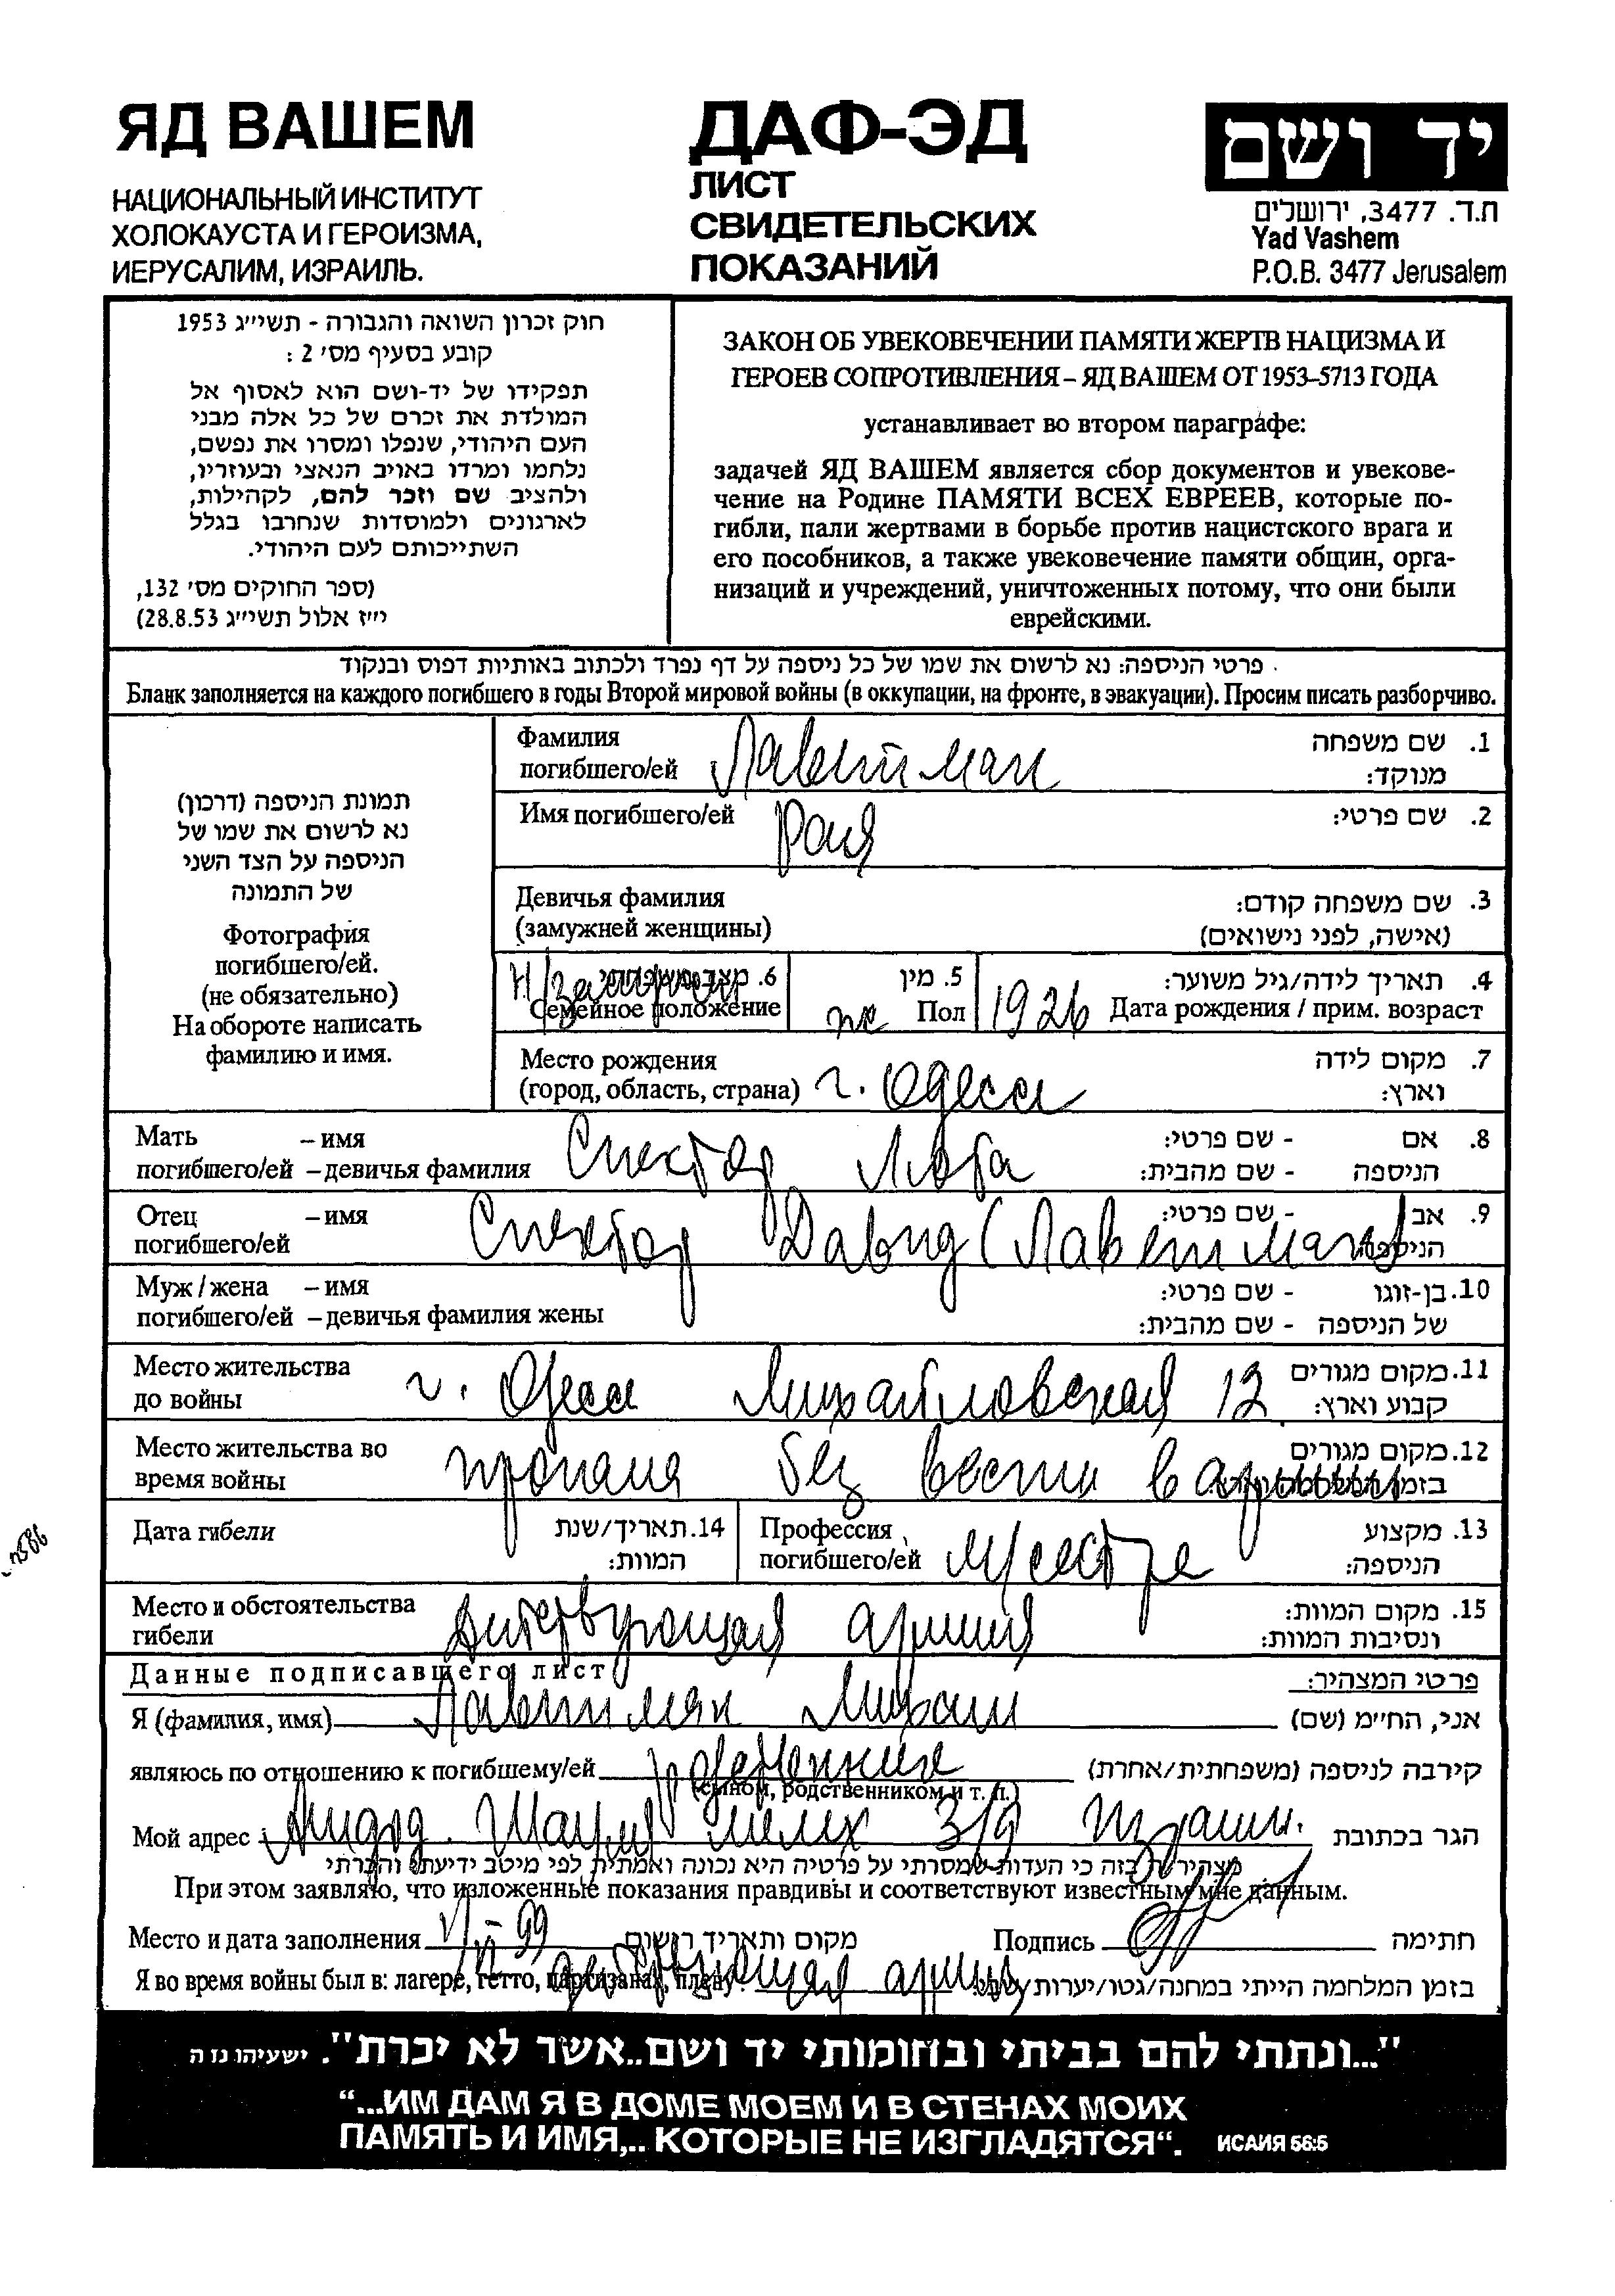 ЯД ВАШЕМ
НАЦИОНАЛЬНЫЙ ИНСТИТУТ
ХОЛОКАУСТА И ГЕРОИЗМА,
ИЕРУСАЛИМ, ИЗРАИЛЬ.
ДАФ-ЭД
ЛИСТ
СВИДЕТЕЛЬСКИХ
ПОКАЗАНИЙ
יד ושם
ת.ד. 3477, ירושלים
Yad Vashem
P.O.B. 3477 Jerusalem
חוק זכרון השואה והגבורה - תשי״ג 1953
קובע בסעיף מס׳ 2 :
תפקידו של יד-ושם הוא לאסוף אל
המולדת את זכרם של כל אלה מבני
העם היהודי, שנפלו ומסרו את נפשם,
נלחמו ומרדו באויב הנאצי ובעוזריו,
ולהציב שם וזכר להם, לקהילות,
לארגונים ולמוסדות שנחרבו בגלל
השתייכותם לעם היהודי.
(ספר החוקים מס׳ 132,
י״ז אלול תשי״ג 28.8.53)
ЗАКОН ОБ УВЕКОВЕЧЕНИИ ПАМЯТИ ЖЕРТВ НАЦИЗМА И
ГЕРОЕВ СОПРОТИВЛЕНИЯ – ЯД ВАШЕМ ОТ 1953–5713 ГОДА
устанавливает во втором параграфе:
задачей ЯД ВАШЕМ является сбор документов и увекове-
чение на Родине ПАМЯТИ ВСЕХ ЕВРЕЕВ, которые по-
гибли, пали жертвами в борьбе против нацистского врага и
его пособников, а также увековечение памяти общин, орга-
низаций и учреждений, уничтоженных потому, что они были
еврейскими.
פרטי הניספה: נא לרשום את שמו של כל ניספה על דף נפרד ולכתוב באותיות דפוס ובנקוד
Бланк заполняется на каждого погибшего в годы Второй мировой войны (в оккупации, на фронте, в эвакуации). Просим писать разборчиво.
תמונת הניספה (דרכון)
נא לרשום את שמו של
הניספה על הצד השני
של התמונה
Фотография
погибшего/ей.
(не обязательно)
На обороте написать
фамилию и имя.
Фамилия 1. שם משפחה
погибшего/ей Лавентман מנוקד:
Имя погибшего/ей Рая 2. שם פרטי:
Девичья фамилия 3. שם משפחה קודם:
(замужней женщины) (אישה, לפני נישואים)
н/замужем 6. מצב משפחתי 5. מין 4. תאריך לידה/גיל משוער:
Семейное положение ж Пол 1926 Дата рождения / прим. возраст
Место рождения 7. מקום לידה
(город, область, страна) г. Одесса וארץ:
Мать – имя Спектор Люба 8. אם - שם פרטי:
погибшего/ей – девичья фамилия הניספה - שם מהבית:
Отец – имя Спектор Давид (Лавентман) 9. אב - שם פרטי:
погибшего/ей הניספה
Муж / жена – имя 10. בן-זוגו - שם פרטי:
погибшего/ей – девичья фамилия жены של הניספה - שם מהבית:
Место жительства 11. מקום מגורים
до войны г. Одесса Михайловская 12 קבוע וארץ:
Место жительства во 12. מקום מגורים
время войны пропала без вести в армии
Дата гибели 14. תאריך/שנת Профессия 13. מקצוע
המוות: погибшего/ей медсестра הניספה:
Место и обстоятельства 15. מקום המוות:
гибели Действующая армия ונסיבות המוות:
Данные подписавшего лист פרטי המצהיר:
Я (фамилия, имя) Лавентман Михаил אני, הח״מ (שם)
являюсь по отношению к погибшему/ей קירבה לניספה (משפחתית/אחרת)
(сыном, родственником и т. п.)
Мой адрес Ашдод. Шаул мелех 3/9 Израиль. הגר בכתובת
מצהיר/ה בזה כי העדות שמסרתי על פרטיה היא נכונה ואמתית לפי מיטב ידיעתי והכרתי
При этом заявляю, что изложенные показания правдивы и соответствуют известным мне данным.
Место и дата заполнения מקום ותאריך רישום Подпись חתימה
Я во время войны был в: лагере, гетто, партизанах, плену: действующая армия בזמן המלחמה הייתי במחנה/גטו/יערות/
"...ונתתי להם בביתי ובחומותי יד ושם..אשר לא יכרת". ישעיהו נו ה
“...ИМ ДАМ Я В ДОМЕ МОЕМ И В СТЕНАХ МОИХ
ПАМЯТЬ И ИМЯ,.. КОТОРЫЕ НЕ ИЗГЛАДЯТСЯ“. ИСАИЯ 56:5